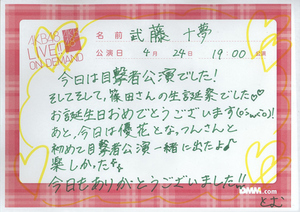 AKB48
LIVE!!
ON DEMAND
名前 武藤 十夢
公演日 4月 24日 19:00 公演
今日は目撃者公演でした!
そしてそして、篠田さんの生誕祭でした♡♡
お誕生日おめでとうございます
あと、今日は優花となっつんさんと
初めて目撃者公演一緒に出たよ♪
楽しかったなぁ
今日もありがとうございました!!
DMM.com
とむ